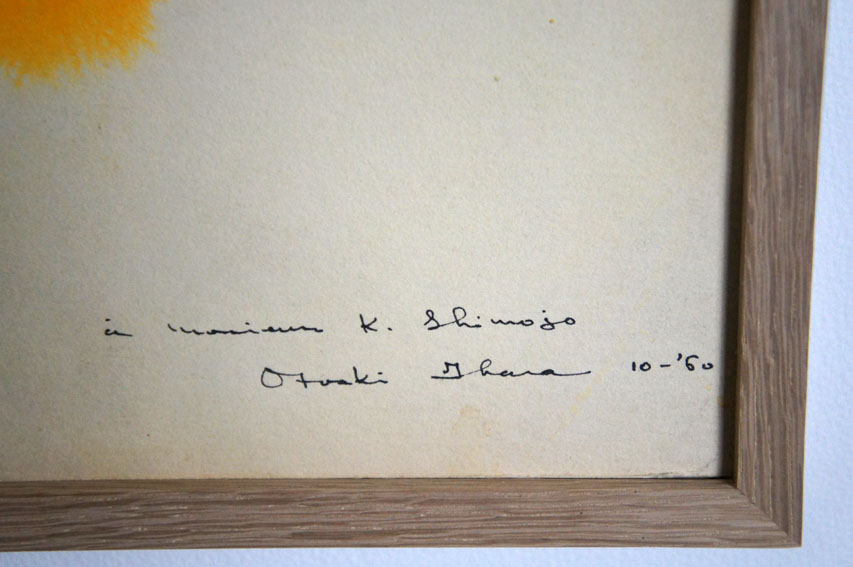 à monsieur K. Shimojo
Otoaki Ihara 10-'60